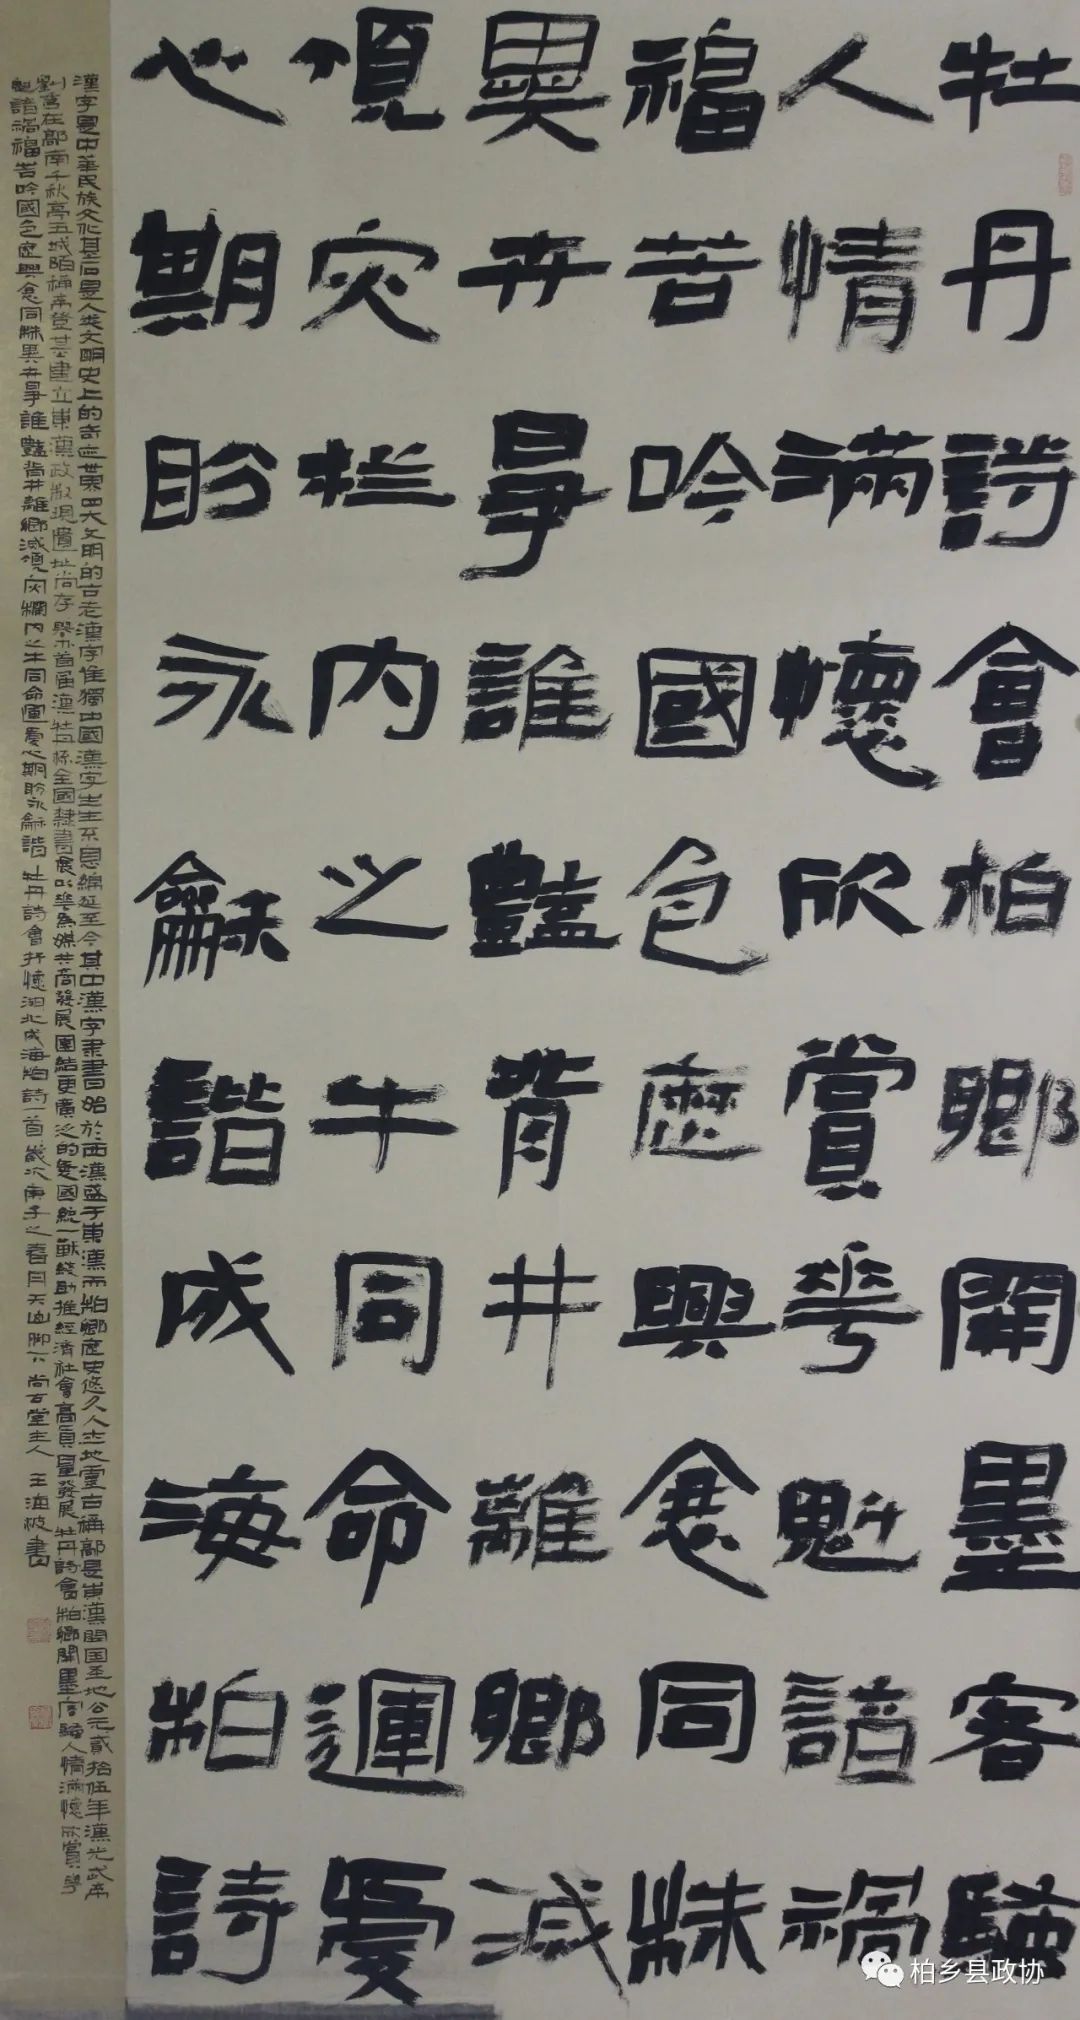 牡丹詩會柏鄉開墨客騷
人情滿懷欣賞花魁諳禍
福苦吟國色歷興衰同株
異卉爭誰豔背井離鄉減
頃灾栏内之牛同命運憂
心期盼永龢諧成海柏詩
漢字是中華民族文化基石是人类文明史上的奇迹世界四大文明的古老漢字惟獨中國漢字生生不息綿延至今其中漢字隶書始於西漢盛于東漢而柏鄉歷史悠久人杰地靈古稱鄗是東漢開国圣地公元貳拾伍年漢光武帝
劉秀在鄗南千秋亭五城陌稱帝登基建立東漢政权現遺址尚存舉办首届漢牡丹杯全國隸書展以花為媒共商發展團結更廣泛的愛國統一戰綫助推經濟社會高質量發展牡丹詩會柏鄉開墨客騷人情滿懷欣賞花
魁諳禍福苦吟國色歷興衰同株異卉爭誰豔背井離鄉減頃灾欄内之牛同命運憂心期盼永龢諧牡丹詩會抒懷湖北成海柏詩一首歲次庚子之春月天山脚下尚古堂主人王海波書
柏乡县政协